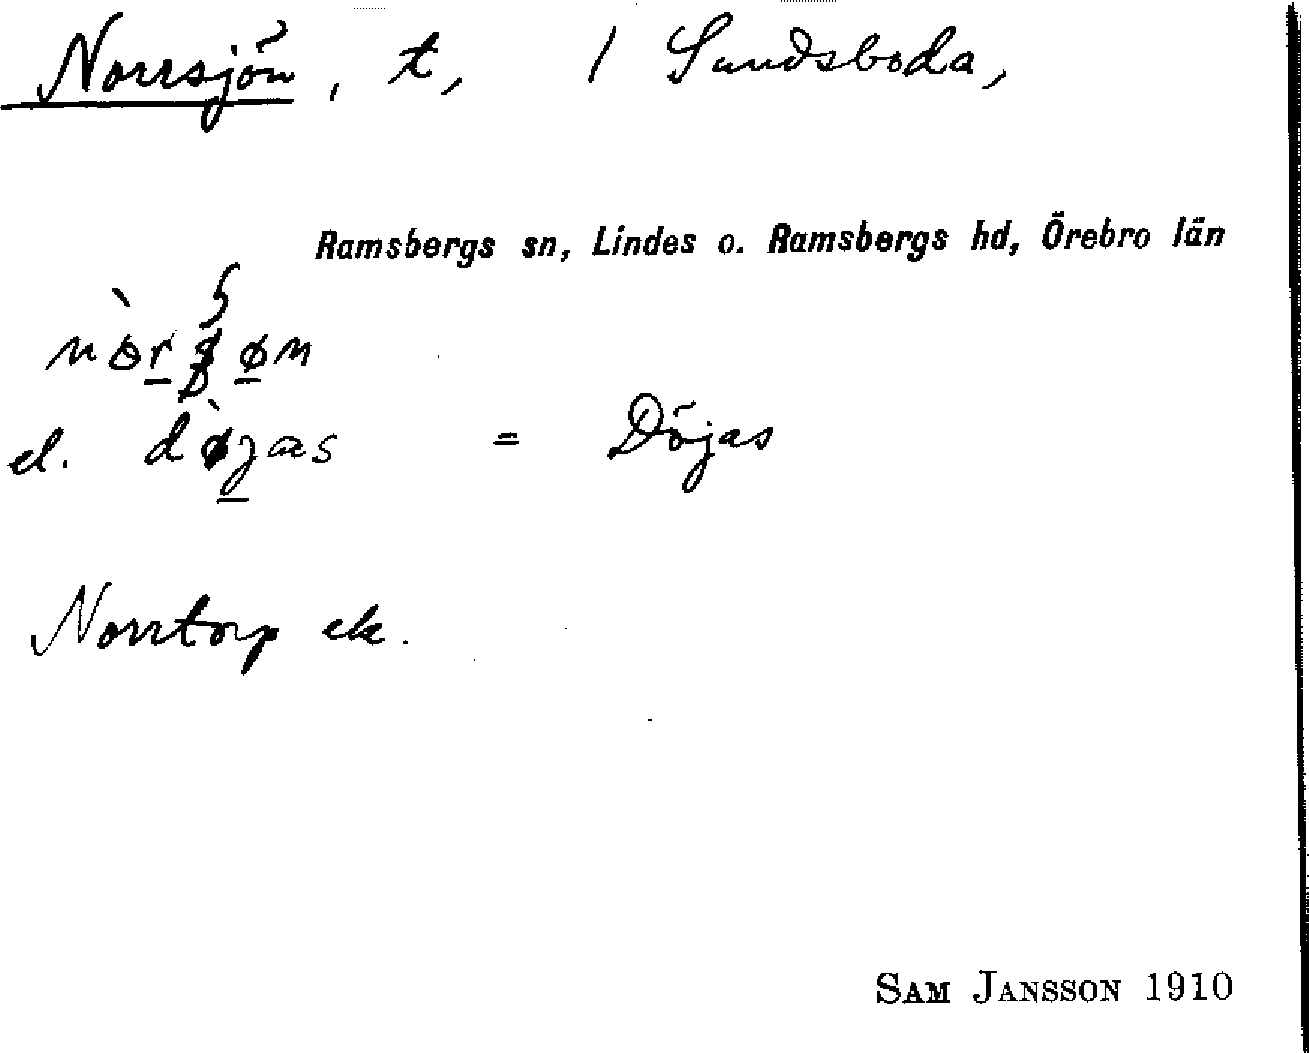 Norrsjön, t, 1 Sundsboda,
Ramsbergs sn, Lindes o. Ramsbergs hd, Örebro län
el. døjas = Döjas
Norrtorp ek.
SAM JANSSON 1910